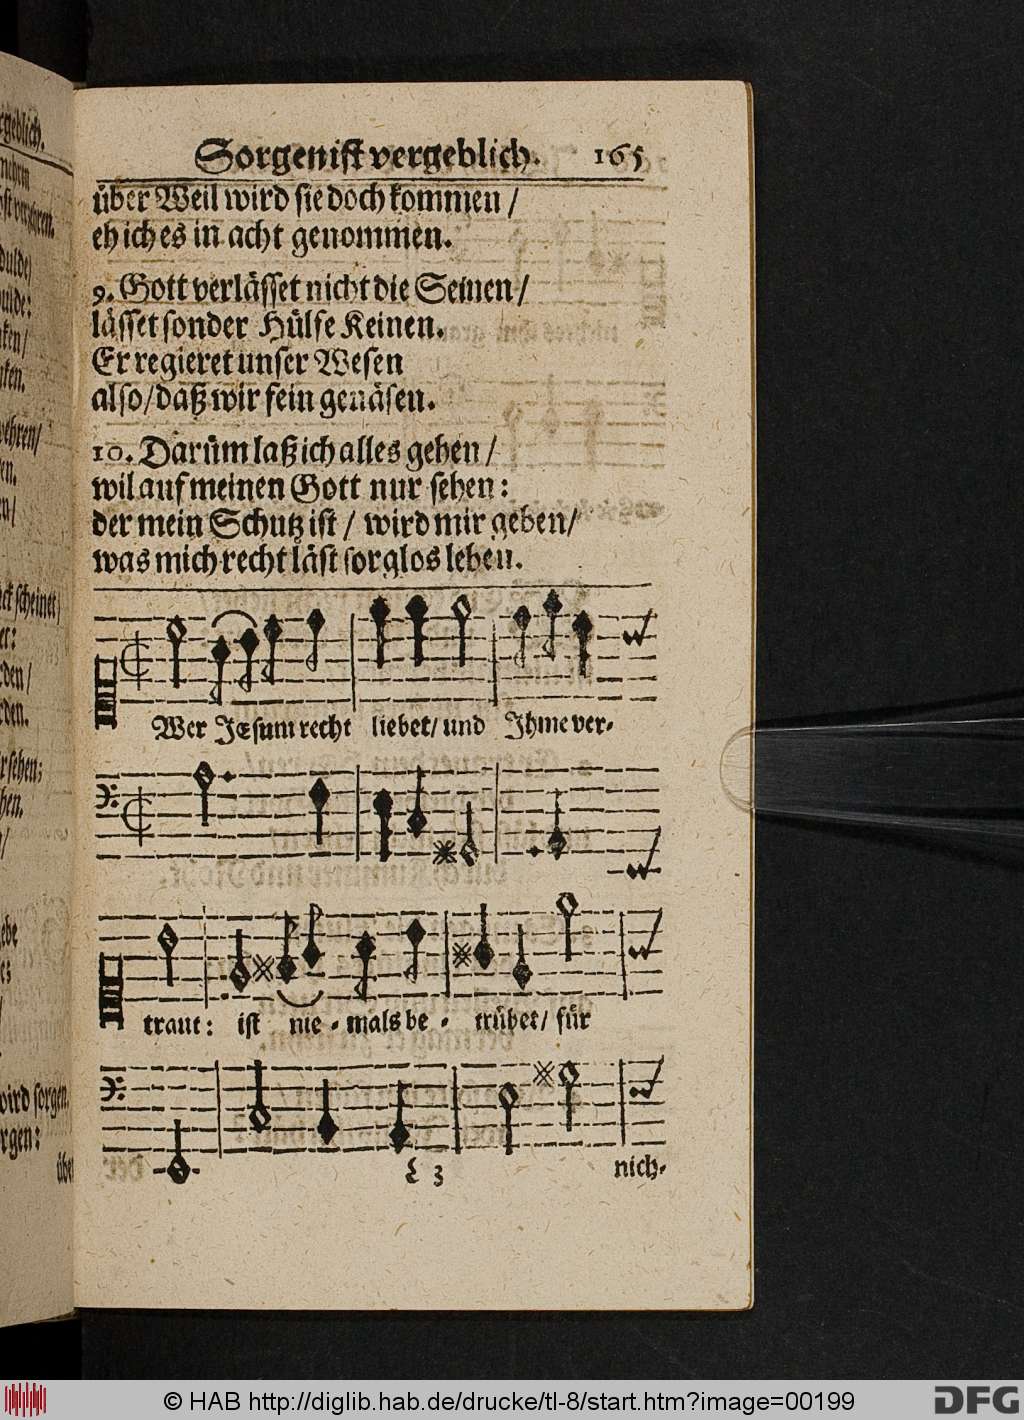 Sorgen ist vergeblich. 165
über Weil wird sie doch kommen /
eh ich es in acht genommen.
9. Gott verlässet nicht die Seinen /
lässet sonder Hülfe Keinen.
Er regieret unser Wesen
also / daß wir fein genäsen.
10. Darüm laß ich alles gehen /
wil auf meinen Gott nur sehen:
der mein Schutz ist / wird mir geben /
was mich recht läst sorglos leben.
Wer JEsum recht liebet / und Ihme ver-
traut: ist nie-mals be-trübet / für
L 3 nich-
© HAB http://diglib.hab.de/drucke/tl-8/start.htm?image=00199 DFG